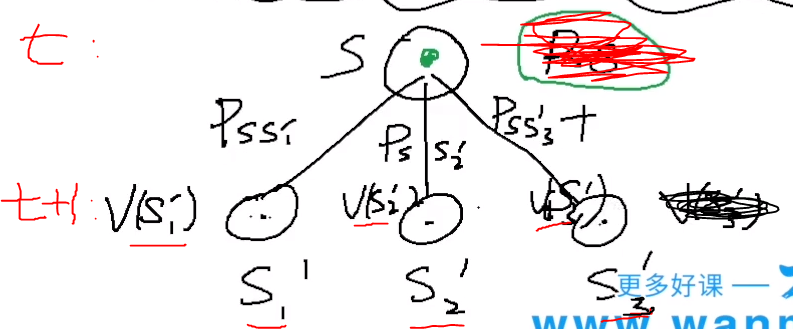 t: S
Pss₁' Ps s₂' Pss₃' +
t+1: V(S₁') V(S₂')
S₁' S₂' S₃'
更多好课 —
www.wann